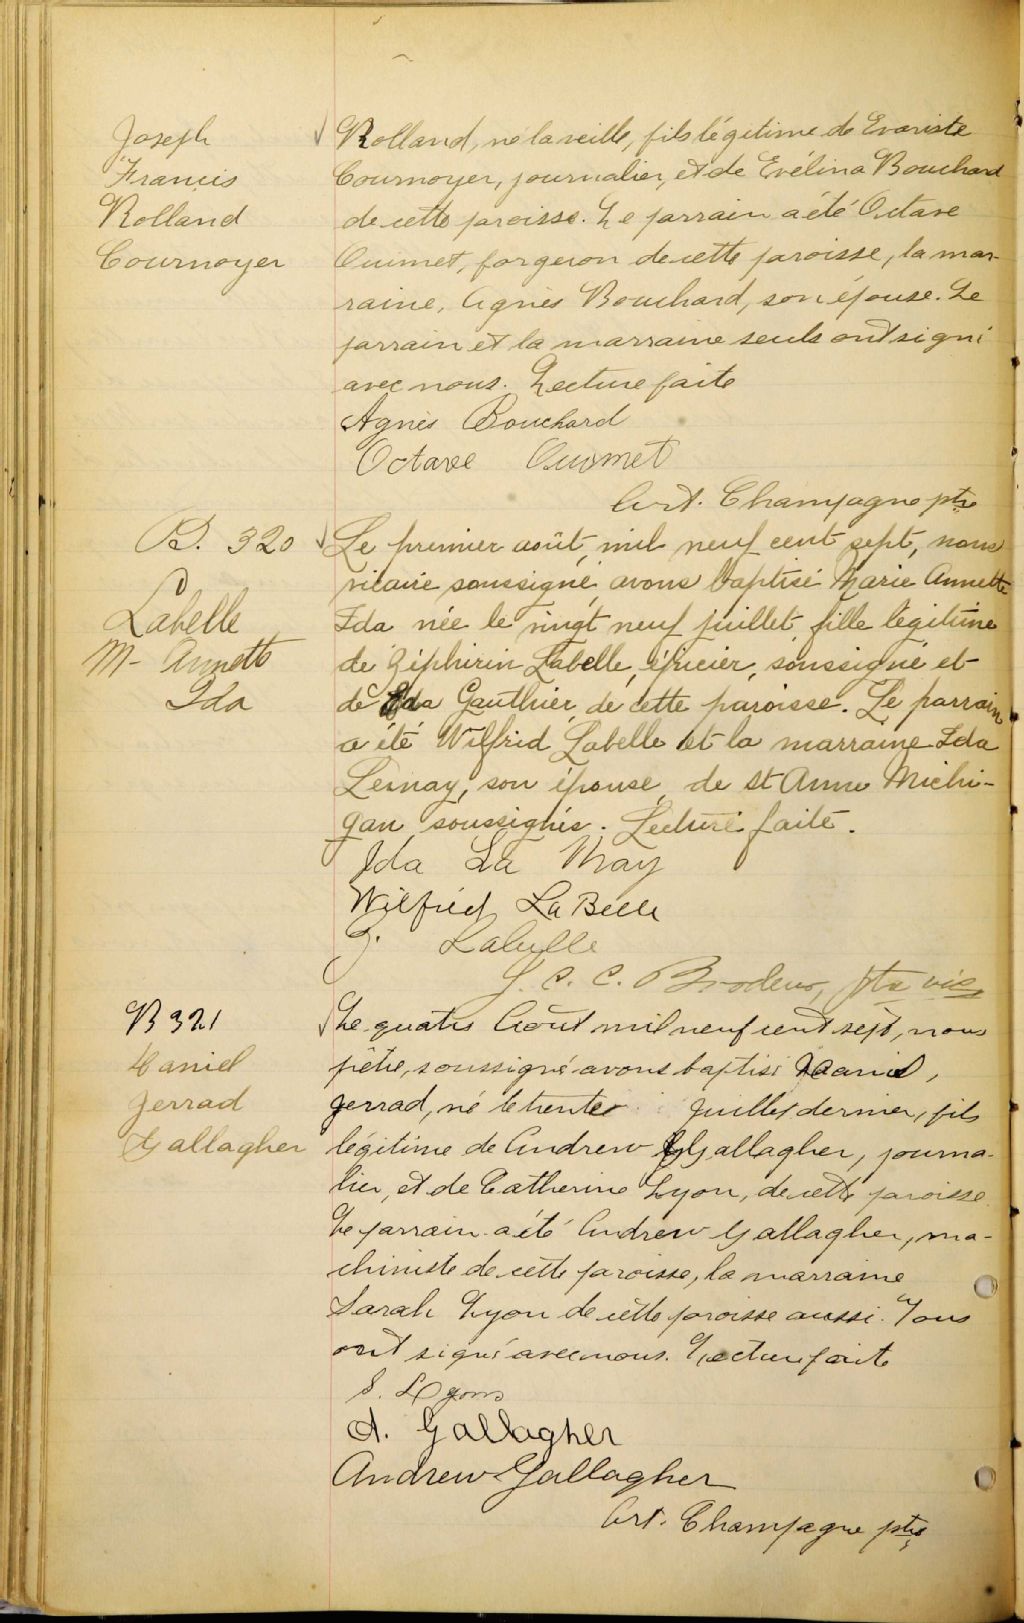 Joseph
Francis
Rolland
Cournoyer
Rolland, né la veille, fils légitime de Evariste
Cournoyer, journalier, et de Evélina Bouchard
de cette paroisse. Le parrain a été Octave
Ouimet, forgeron de cette paroisse, la mar-
raine, Agnès Bouchard, son épouse. Le
parrain et la marraine seuls ont signé
avec nous. Lecture faite
Agnès Bouchard
Octave Ouimet
Art. Champagne ptre
B. 320
Labelle
M- Annette
Ida
Le premier août, mil neuf cent sept, nous
vicaire soussigné, avons baptisé Marie Annette
Ida née le vingt neuf juillet, fille légitime
de Zéphirin Labelle, épicier, soussigné et
de Eda Gauthier, de cette paroisse. Le parrain
a été Wilfrid Labelle et la marraine Ida
Lemay, son épouse, de St Anne Michi-
gan soussignés. Lecture faite.
Ida La May
Wilfried LaBelle
Z. Labelle
J. C. C. Brodeur, ptre vic
B 321
Daniel
Gerrad
Gallagher
Le quatre Août mil neuf cent sept, nous
pêtre, soussigné avons baptisé Daniel,
Gerrad, né le trente Juillet dernier, fils
légitime de Andrew Gallagher, journa-
lier, et de Catherine Lyon, de cette paroisse.
Le parrain a été Andrew Gallagher, ma-
chiniste de cette paroisse, la marraine
Sarah Lyon de cette paroisse aussi. Tous
ont signé avec nous. Lecture faite
S. Lyons
A. Gallagher
Andrew Gallagher
Art. Champagne ptre